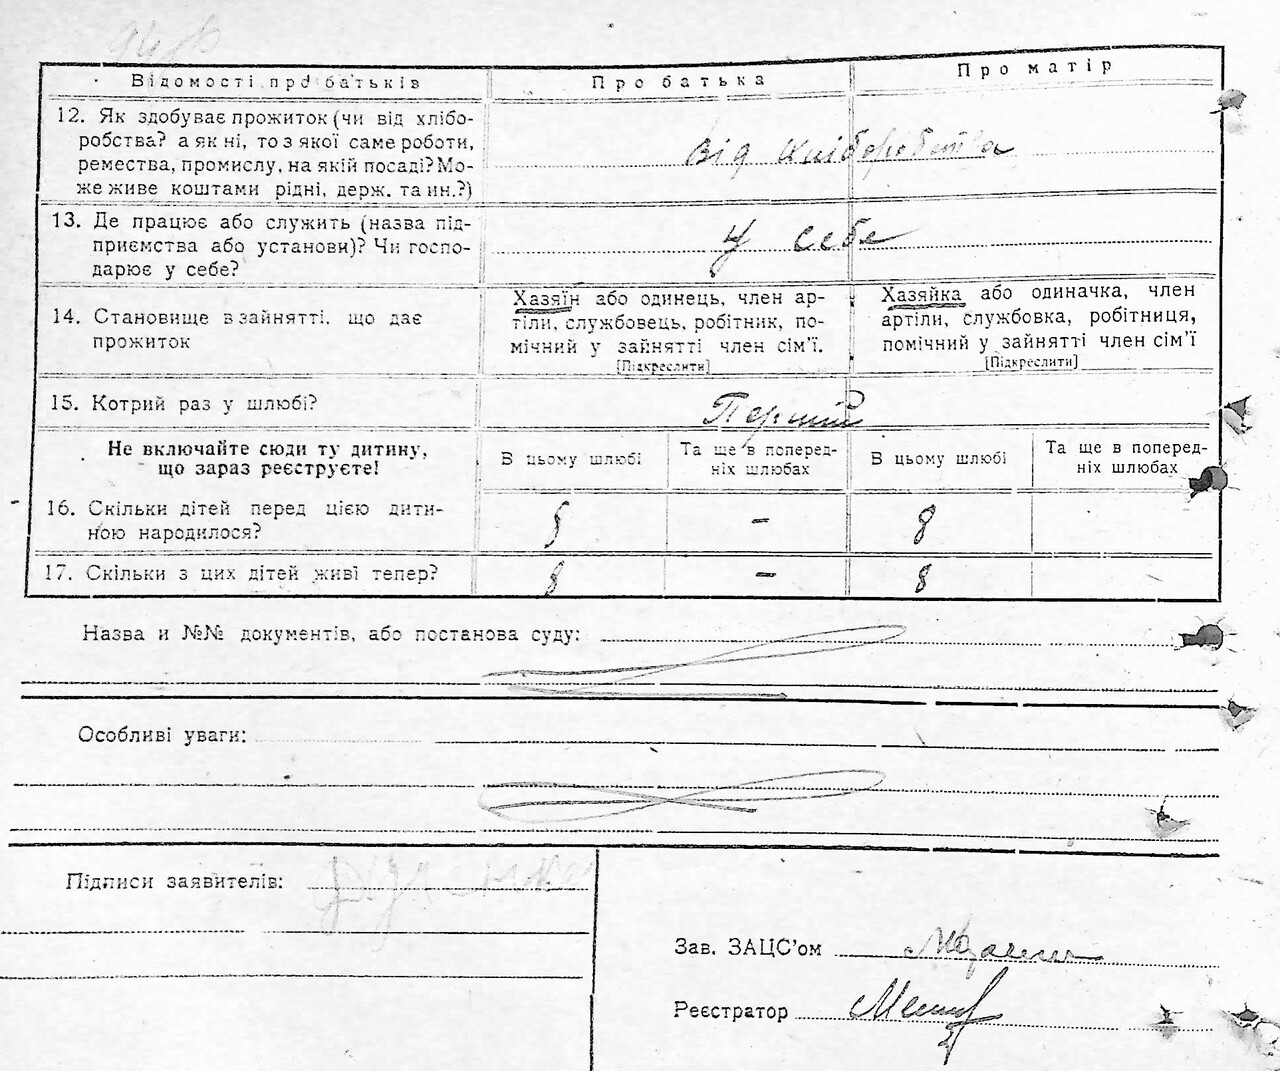 Відомості про батьків
Про батька
Про матір
12. Як здобуває прожиток (чи від хлібо-
робства? а як ні, то з якої саме роботи,
ремества, промислу, на якій посаді? Мо-
же живе коштами рідні, держ. та ин.?)
від хліборобства
13. Де працює або служить (назва під-
приємства або установи)? Чи госпо-
дарює у себе?
у себе
14. Становище в зайнятті, що дає
прожиток
Хазяїн або одинець, член ар-
тіли, службовець, робітник, по-
мічний у зайнятті член сім'ї.
[Підкреслити]
Хазяйка або одиначка, член
артіли, службовка, робітниця,
помічний у зайнятті член сім'ї
[Підкреслити]
15. Котрий раз у шлюбі?
Перший
Не включайте сюди ту дитину,
що зараз реєструєте!
В цьому шлюбі
Та ще в поперед-
ніх шлюбах
В цьому шлюбі
Та ще в поперед-
ніх шлюбах
16. Скільки дітей перед цією дити-
ною народилося?
–
8
17. Скільки з цих дітей живі тепер?
8
–
8
Назва и №№ документів, або постанова суду:
Особливі уваги:
Підписи заявителів:
Зав. ЗАЦС'ом
Реєстратор